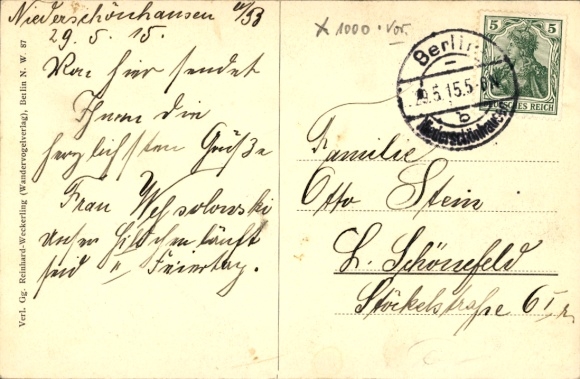 Niederschönhausen
29. 5. 15.
Von hier sendet
Ihnen die
herzlichsten Grüße
Frau Wessolowski
unser läuft
seid Feiertag.
Verl. Gg. Reinhard-Weckerling (Wandervogelverlag), Berlin N. W. 87
x 1000. Vor.
Berlin
29.5.15.5-6N.
b
Niederschönhausen
5 5
DEUTSCHES REICH
Familie
Otto Stein
L. Schönefeld
Stöckelstraße 6 I r.